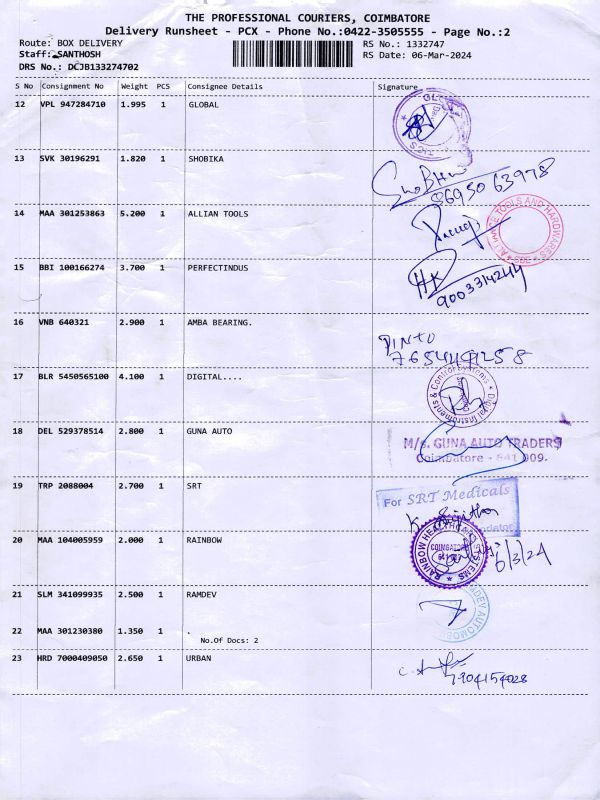 THE PROFESSIONAL COURIERS, COIMBATORE
Delivery Runsheet - PCX - Phone No.:0422-3505555 - Page No.:2
Route: BOX DELIVERY RS No.: 1332747
Staff: SANTHOSH RS Date: 06-Mar-2024
DRS No.: DCJB133274702
S No Consignment No Weight PCS Consignee Details Signature
12 VPL 947284710 1.995 1 GLOBAL
13 SVK 30196291 1.820 1 SHOBIKA
86950 63978
14 MAA 301253863 5.200 1 ALLIAN TOOLS
TOOLS AND HARDWARES
15 BBI 100166274 3.700 1 PERFECTINDUS
9003314244
16 VNB 640321 2.900 1 AMBA BEARING.
PINTO
17 BLR 5450565100 4.100 1 DIGITAL....
Digital Instruments & Control Systems
18 DEL 529378514 2.800 1 GUNA AUTO
M/s. GUNA AUTO TRADERS
Coimbatore - 641 009.
19 TRP 2088004 2.700 1 SRT
For SRT Medicals
20 MAA 104005959 2.000 1 RAINBOW
RAINBOW HEALTHCARE SYSTEMS
COIMBATORE
6/3/24
21 SLM 341099935 2.500 1 RAMDEV
22 MAA 301230380 1.350 1 .
No.Of Docs: 2
23 HRD 7000409050 2.650 1 URBAN
7904154028